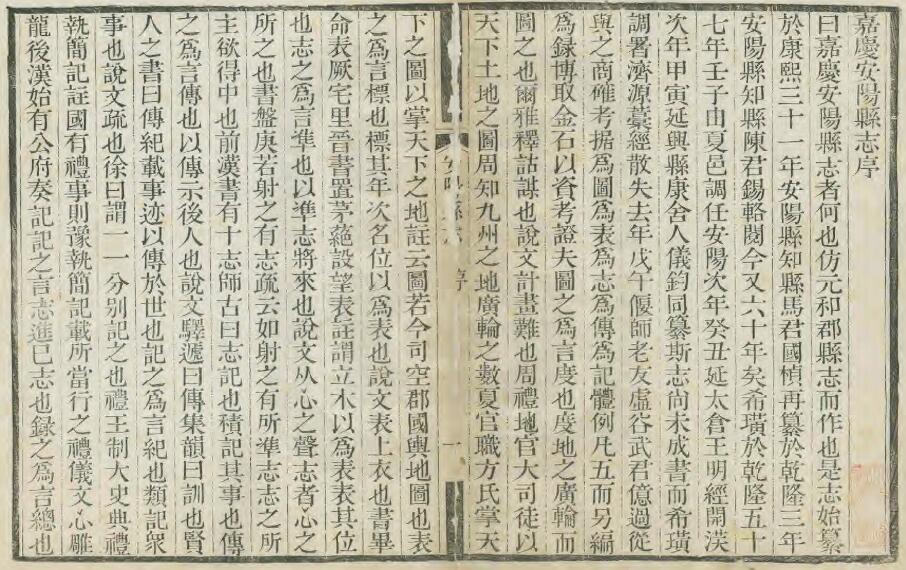 嘉慶安陽縣志序
曰嘉慶安陽縣志者何也仿元和郡縣志而作也是志始纂
於康熙三十一年安陽縣知縣馬君國楨再纂於乾隆三年
安陽縣知縣陳君錫輅閱今又六十年矣希璜於乾隆五十
七年壬子由夏邑調任安陽次年癸丑延太倉王明經開沃
次年甲寅延興縣康舍人儀鈞同纂斯志尚未成書而希璜
調署濟源藁經散失去年戊午偃師老友虛谷武君億過從
與之商確考据爲圖爲表爲志爲傳爲記體例凡五而另編
爲錄博取金石以資考證夫圖之爲言度也度地之廣輪而
圖之也爾雅釋詁謀也說文計畫難也周禮地官大司徒以
天下土地之圖周知九州之地廣輪之數夏官職方氏掌天
序
一
下之圖以掌天下之地註云圖若今司空郡國輿地圖也表
之爲言標也標其年次名位以爲表也說文表上衣也書畢
命表厥宅里晉書置茅蕝設望表註謂立木以爲表表其位
也志之爲言準也以準志將來也說文从心之聲志者心之
所之也書盤庚若射之有志疏云如射之有所準志志之所
主欲得中也前漢書有十志師古曰志記也積記其事也傳
之爲言傳也以傳示後人也說文驛遞曰傳集韻曰訓也賢
人之書曰傳紀載事迹以傳於世也記之爲言紀也類記衆
事也說文疏也徐曰謂一一分別記之也禮王制大史典禮
執簡記註國有禮事則豫執簡記載所當行之禮儀文心雕
龍後漢始有公府奏記記之言志進已志也錄之爲言總也